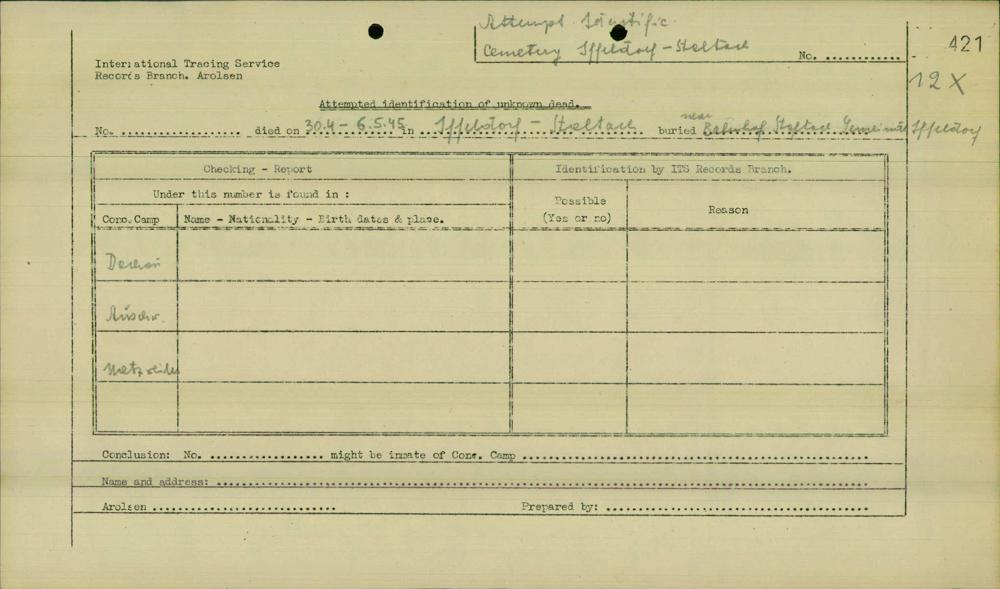 Attempt Identific.
Cemetery Iffeldorf - Staltach
No. ............
421
12 X
International Tracing Service
Records Branch. Arolsen
Attempted identification of unknown dead.
No. .................... died on 30.4 - 6.5.45 in Iffeldorf - Staltach near buried Bahnhof Staltach Gemeinde Iffeldorf
Checking - Report
Identification by ITS Records Branch.
Under this number is found in :
Possible
(Yes or no)
Reason
Conc. Camp Name - Nationality - Birth dates & place.
Dachau
Auschw.
Natzweiler
Conclusion: No. .................. might be inmate of Conc. Camp ............................................................
Name and address: ............................................................
Arolsen ................................ Prepared by: ..............................................